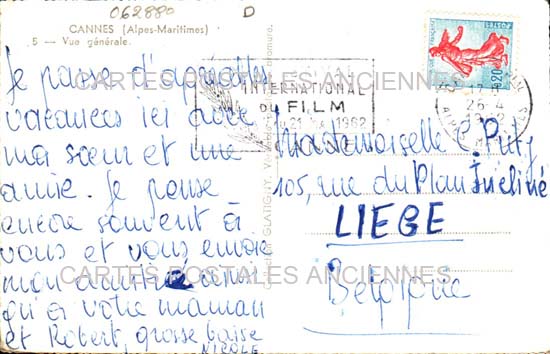 062880
D
CANNES (Alpes-Maritimes)
5 - Vue générale.
Je passe d'agréables
vacances ici avec
ma sœur et une
amie. Je pense
encore souvent à
vous et vous envoie
mon amitié ainsi
qu'à votre maman
et Robert, grosse baise
NICOLE
GLATIGNY
INTERNATIONAL
DU FILM
1962
CANNES
POSTES
0,20
26-4
Mademoiselle C. Puty
105, rue du Plan Incliné
LIEGE
Belgique
CARTES POSTALES ANCIENNES
CARTES POSTALES ANCIENNES